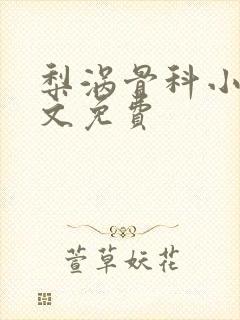 梨涡骨科小
文免費
萱草妖花